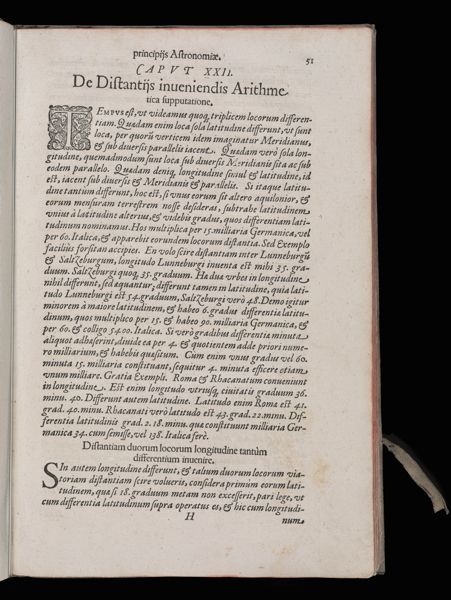 principijs Astronomiæ. 51
CAPVT XXII.
De Distantijs inueniendis Arithme-
tica supputatione.
TEMPVS est, vt videamus quoq; triplicem locorum differen-
tiam. Quædam enim loca sola latitudine differunt, vt sunt
loca, per quorũ verticem idem imaginatur Meridianus,
& sub diuersis parallelis iacent. Quædam verò sola lon-
gitudine, quemadmodum sunt loca sub diuersis Meridianis sita ac sub
eodem parallelo. Quædam deniq; longitudine simul & latitudine, id
est, iacent sub diuersis & Meridianis & parallelis. Si itaque latitu-
dine tantùm differunt, hoc est, si vnus eorum sit altero aquilonior, &
eorum mensuram terrestrem nosse desideras, subtrahe latitudinem
vnius à latitudine alterius, & videbis gradus, quos differentiam lati-
tudinum nominamus. Hos multiplica per 15. milliaria Germanica, vel
per 60. Italica, & apparebit eorundem locorum distantia. Sed Exemplo
faciliùs forsitan accipies. En volo scire distantiam inter Lunneburgũ
& Saltzeburgum, longitudo Lunneburgi inuenta est mihi 35. gra-
duum. Saltzeburgi quoq; 35. graduum. Hæ duæ vrbes in longitudine
nihil differunt, sed æquantur; differunt tamen in latitudine, quia lati-
tudo Lunneburgi est 54. graduum, Saltzburgi verò 48. Demo igitur
minorem à maiore latitudinem, & habeo 6. gradus differentiæ latitu-
dinum, quos multiplico per 15. & habeo 90. milliaria Germanica, &
per 60. & colligo 5400. Italica. Si verò gradibus differentia minuta
aliquot adhæserint, diuide ea per 4. & quotientem adde priori nume-
ro milliarium, & habebis quæsitum. Cum enim vnus gradus vel 60.
minuta 15. milliaria constituant, sequitur 4. minuta efficere etiam
vnum milliare. Gratia Exempli. Roma & Rhacanatum conueniunt
in longitudine. Est enim longitudo vtriusq; ciuitatis graduum 36.
minu. 40. Differunt autem latitudine. Latitudo enim Romæ est 41.
grad. 40. minu. Rhacanati verò latitudo est 43. grad. 22. minu. Dif-
ferentia latitudinis grad. 2. 18. minu. qua constituunt milliaria Ger-
manica 34. cum semisse, vel 138. Italica ferè.
Distantiam duorum locorum longitudine tantùm
differentium inuenire.
SIn autem longitudine differunt, & talium duorum locorum via-
toriam distantiam scire volueris, considera primùm eorum lati-
tudinem, quæ si 18. graduum metam non excesserit, pari lege, vt
cum differentia latitudinum supra operatus es, & hic cum longitudi-
H num